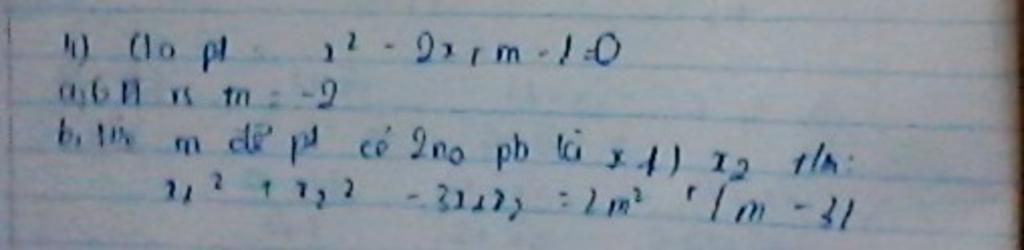 4) Cho pt x² - 2x + m - 1 = 0
a, Giải pt vs m = -2
b, Tìm m để pt có 2 no pb là x1, x2 t/m:
x₁² + x₂² - 3x₁x₂ = 2m² + |m - 3|